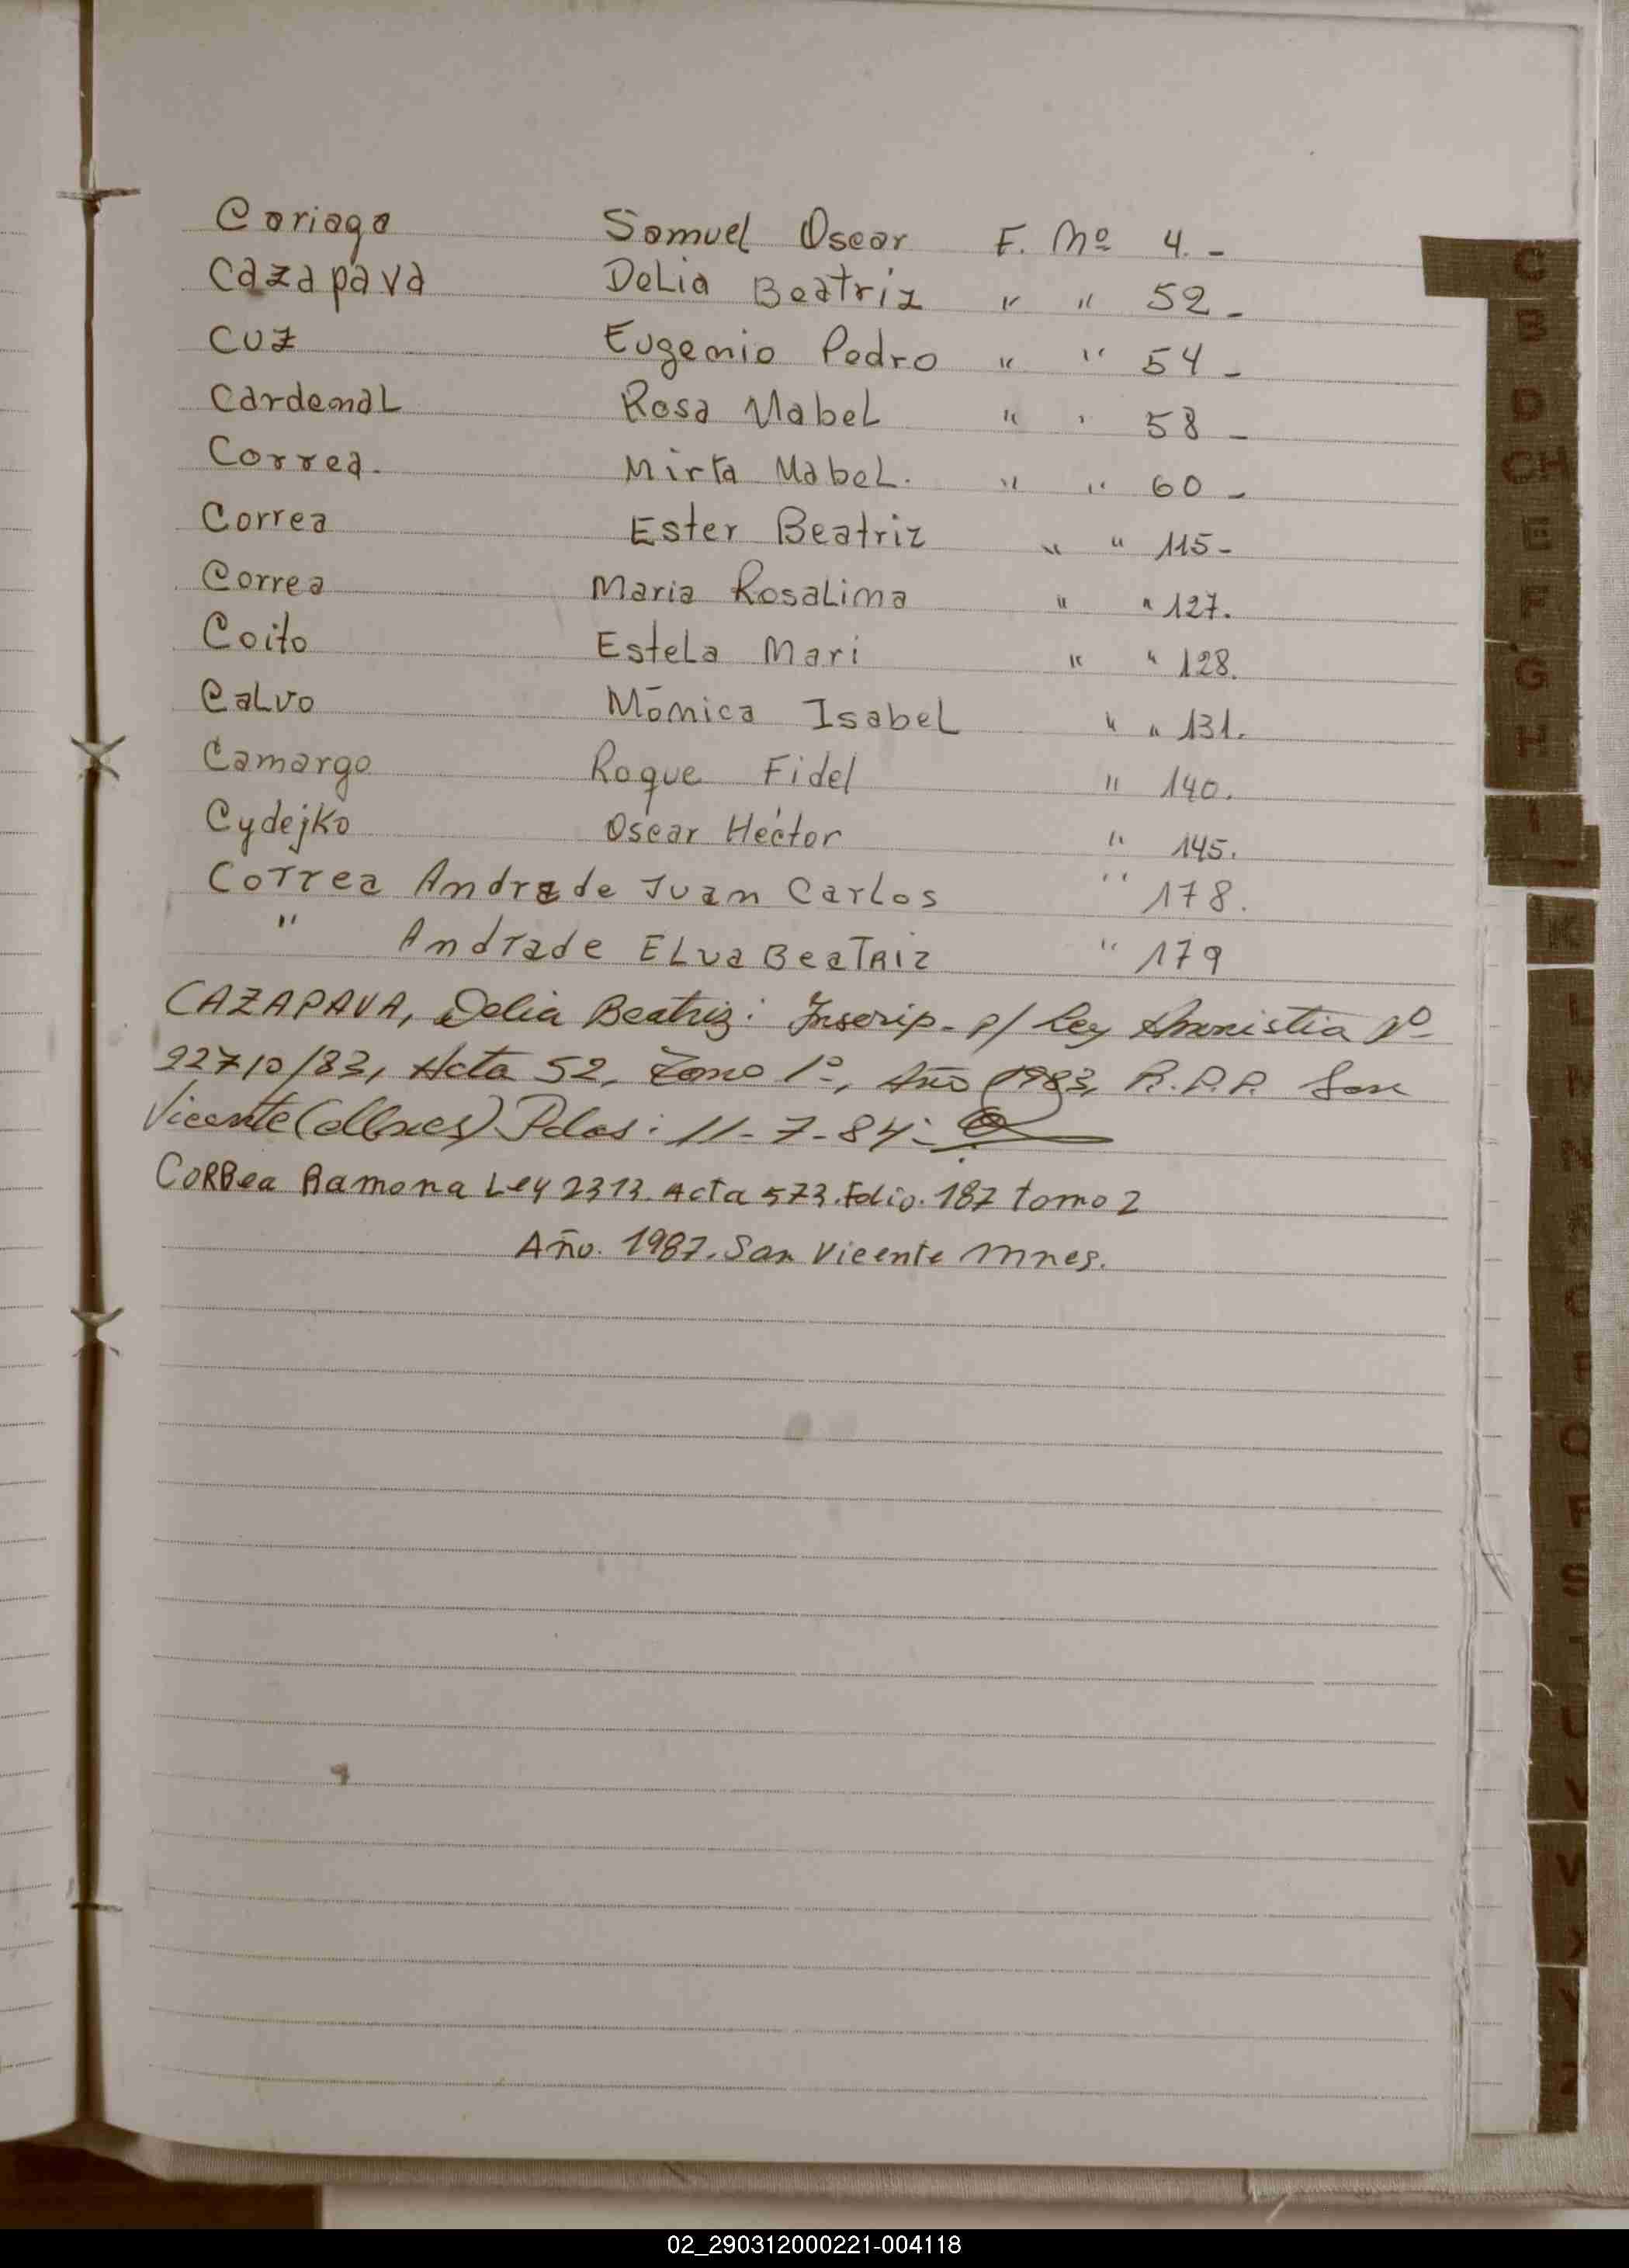 Cariaga Samuel Oscar F. Nº 4.-
Cazapava Delia Beatriz " " 52-
Cuz Eugenio Pedro " " 54-
Cardenal Rosa Mabel " " 58-
Correa. Mirta Mabel. " " 60-
Correa Ester Beatriz " " 115-
Correa Maria Rosalima " " 127.
Coito Estela Mari " " 128.
Calvo Mónica Isabel " " 131.
Camargo Roque Fidel " 140.
Cydejko Oscar Héctor " 145.
Correa Andrade Juan Carlos " 178.
" Andrade Elva Beatriz " 179
CAZAPAVA, Delia Beatriz: Inscrip. p/ Ley Amnistia Nº
22710/83, Acta 52, Tomo 1º, Año 1983, R.P.P. San
Vicente (Mnes) Pdas: 11-7-84-
Correa Ramona Ley 2313. Acta 573. Folio. 187 tomo 2
Año. 1987. San Vicente Mnes.
C
B
D
CH
E
F
G
H
I
K
L
N
O
P
Q
R
S
T
U
V
X
Y
02_290312000221-004118